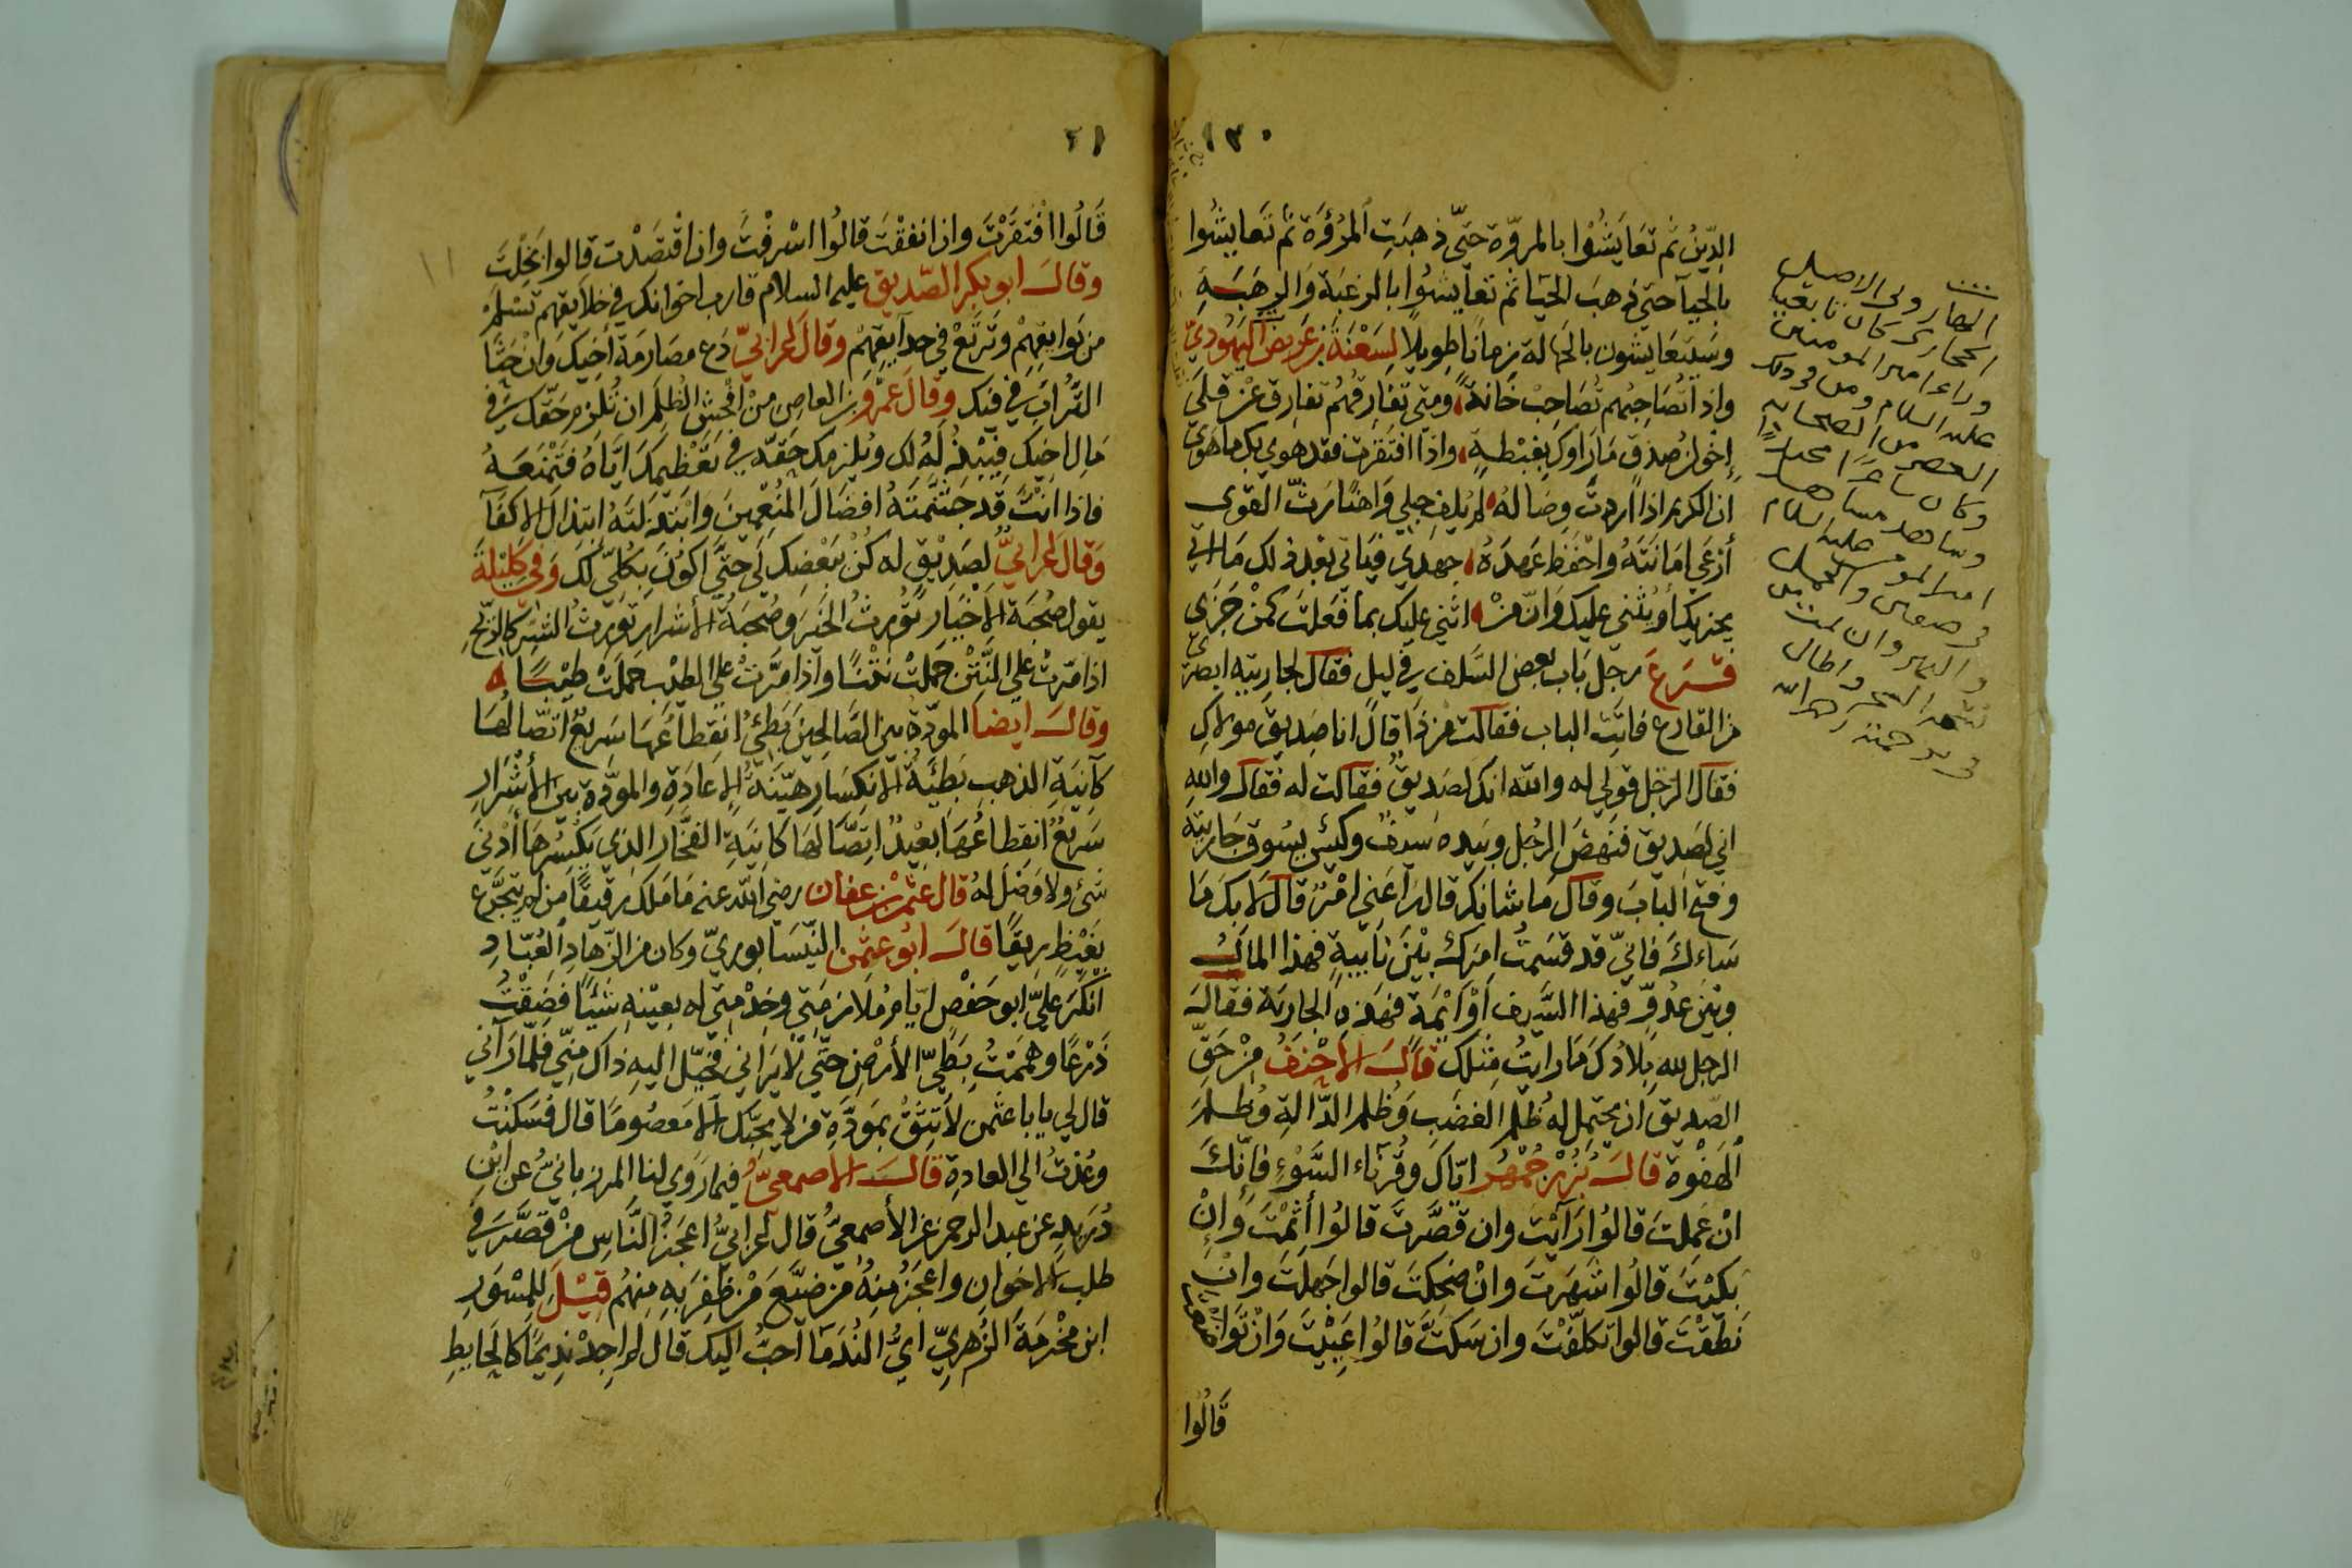 ١٣٠
الدِّينُ ثم تعَايَشُوا بالمروّة حتّى ذهبَتِ المُرُؤَة ثم تَعايَشُوا
بالحيآ حتى ذهبَ الحيَا ثم تعَايشُوا بالرغبَة وَالرهبَةِ
وسَيتعَايشون بالجهالة زمانًا طويلًا لِسَعْنَةَ بن عَريض اليَهُودي
واذا تُصَاحِبُهم تُصَاحِبْ خَانةً ومتى تفارقهُم تفارق عَنْ قِلَى
إخوانُ صِدقٍ مَا رَاوك بغبْطةٍ واذا افتَقرت فقد هوي بك ما هَوي
ان الكريم اذا اردتَ وِصَالهُ لم يُلفِ حبلي وَاهنًا رثّ القوى
أرْعَى امَانتَهُ واحْفَظ عَهدَهُ جهدي فيَاتى بَعْد ذلك مَا اتى
يجزيكَ أو يُثني عليك وَانّ مَنْ اثني عليك بما فَعَلتَ كمن جَزَى
قَرَعَ رجل بَاب بعض السَّلف في ليل فقال لجاريتِه ابصري
من القارع فاتتِ الباب فقالت من ذَا قالَ انا صَديق مولاكِ
فقال الرّجل قولي له والله انك لصَديقٌ فقالت له فقال واللهِ
اني لصَديق فنهَضَ الرجُل وبيَده سَيفٌ وكيسٌ يسُوق جَاريته
وفتح البابَ وقال مَا شانك قال رَاعَني امْرٌ قال لا بكَ مَا
سَاءكَ فانّي قد قسَمتُ امرَك بَيْنَ نَايبةٍ فهذا المالُ
وبَيْن عدُوٍّ فهذا السَّيف أوْ ايِّمَة فهَذِه الجارية فقالَ
الرجل لله بلادُكَ مَا رايتُ مثلكَ قَالَ الأحْنَفُ مِنْ حَقِّ
الصّديق ان يحتمل له ظلم الغضَبِ وَظلم الدّالة وَظلمَ
الهَفْوة قالَ بُزُرْجُمْهُر ايّاكَ وقُرَنآءَ السَّوْءِ فإنّكَ
انْ عَمِلتَ قالوُا رَآيْتَ وان قَصَّرتَ قالوُا أثِمْتَ وَإنْ
بَكَيْتَ قالُوا شَهَرتَ وانْ ضحكتَ قالوا جَهِلتَ وَانْ
نَطَقْتَ قالوا تكلّفْتَ وان سَكتَّ قالوُا عَيِيْتَ وَانْ تَوَاضعت
قَالُوا
الحجازى كان تابعيا
وراء امير المومنين
عليه السلام
وكان شاعرًا
٢١
قَالُوا افْتقَرْتَ واذا انفقْتَ قالُوا اسْرفْتَ وان اقتصَدْت قالوا بَخِلتَ
وقالَ ابو بكر الصّديق عليه السلام قارب اخوانك في خلايقهم تسْلمْ
من بَوايقِهِمْ وتَرتَعْ في حدآيقِهِمْ وقالَ اعرابيّ دَع مصَارمَة أخيكَ وَانْ حَثَا
التُّرابَ في فيك وقال عَمْرو بن العاصِ مِنْ افْحشِ الظلِم ان تُلزمَ حَقّك في
مَال اخيك فيَبْذُلهُ لك ويُلزمك حَقّه في تَعْظيمِكَ ايّاهُ فتَمْنَعَهُ
فاذا انتَ قد جَشَّمتَهُ افضَالَ المُنْعِمينَ وَابْتذلتَهُ ابتذالَ الاكْفَآ
وَقال اعرابيٌّ لصَديقٍ له كُنْ ببَعْضِك لي حتَّى اكُونَ بكُلّي لكَ وَفي كَليْلة
يقول صُحْبَة الاخْيَار تُورثُ الخَيرَ وصُحبَةُ الأشرارِ تورثُ الشرَّ كالرّيحِ
اذا مَرّتْ على النَّتنِ حَملتْ نَتْنًا واذا مَرَّتْ على الطيب حَملَتْ طيْبًا
وقالَ ايضا المودّة بين الصَّالحينَ بَطِئٌ انقطاعُها سَريعٌ اتصّالُهَا
كآنيَةِ الذهبِ بَطيئَةُ الانكسَارِ هَيّنَةُ الإعَادَةِ والمودّة بين الأشْرَارِ
سَريعٌ انقطاعُهَا بَعيْدٌ اتصّالهَا كَآنيَةِ الفخّار الذي يَكْسِرهَا أدْنى
شئ ولا وَصْل لهُ قال عثمن بن عفان رضي الله عنه مَا مَلك رقيقًا من لم يتجرّع
بغيْظٍ ريقًا قالَ ابُو عثمن النّيسَابوريّ وكان من الزّهادِ العُبّادِ
انكرَ عليّ ابو حَفْصٍ ايّامَ مُلازمَتي وخِدْمتي له بعيْنهِ شيْئًا فضِقْتُ
ذَرْعًا وهَمَمْتُ بطَيِّ الأرْضِ حتّى لا يَرَاني فخيّل اليهِ ذاك منّي فلمّا رَآني
قال لي يا با عثمن لا تَثِقْ بمَودَّة من لا يحبّك الّا مَعصُومًا قال فسَكنْتُ
وعُدْتُ الى العادة قَالَ الاصمعيُّ فيما رَوى لنا المرزبانيُّ عن ابْنِ
دُرَيدٍ عن عبد الرحمن عن الأصمعيّ قال اعرابيّ اعجَزُ النَّاسِ مَنْ قصَّرَ في
طلب الاخوانِ واعجَزُ منهُ مَن ضَيّعَ مَنْ ظفِرَ بهِ منهُم قِيْلَ لِلمِسْوَرِ
ابن مَخْرمَةَ الزُهريّ ايُّ النُّدَمَآ احَبُّ اليك قال لم اجدْ نديمًا كالحَايطِ